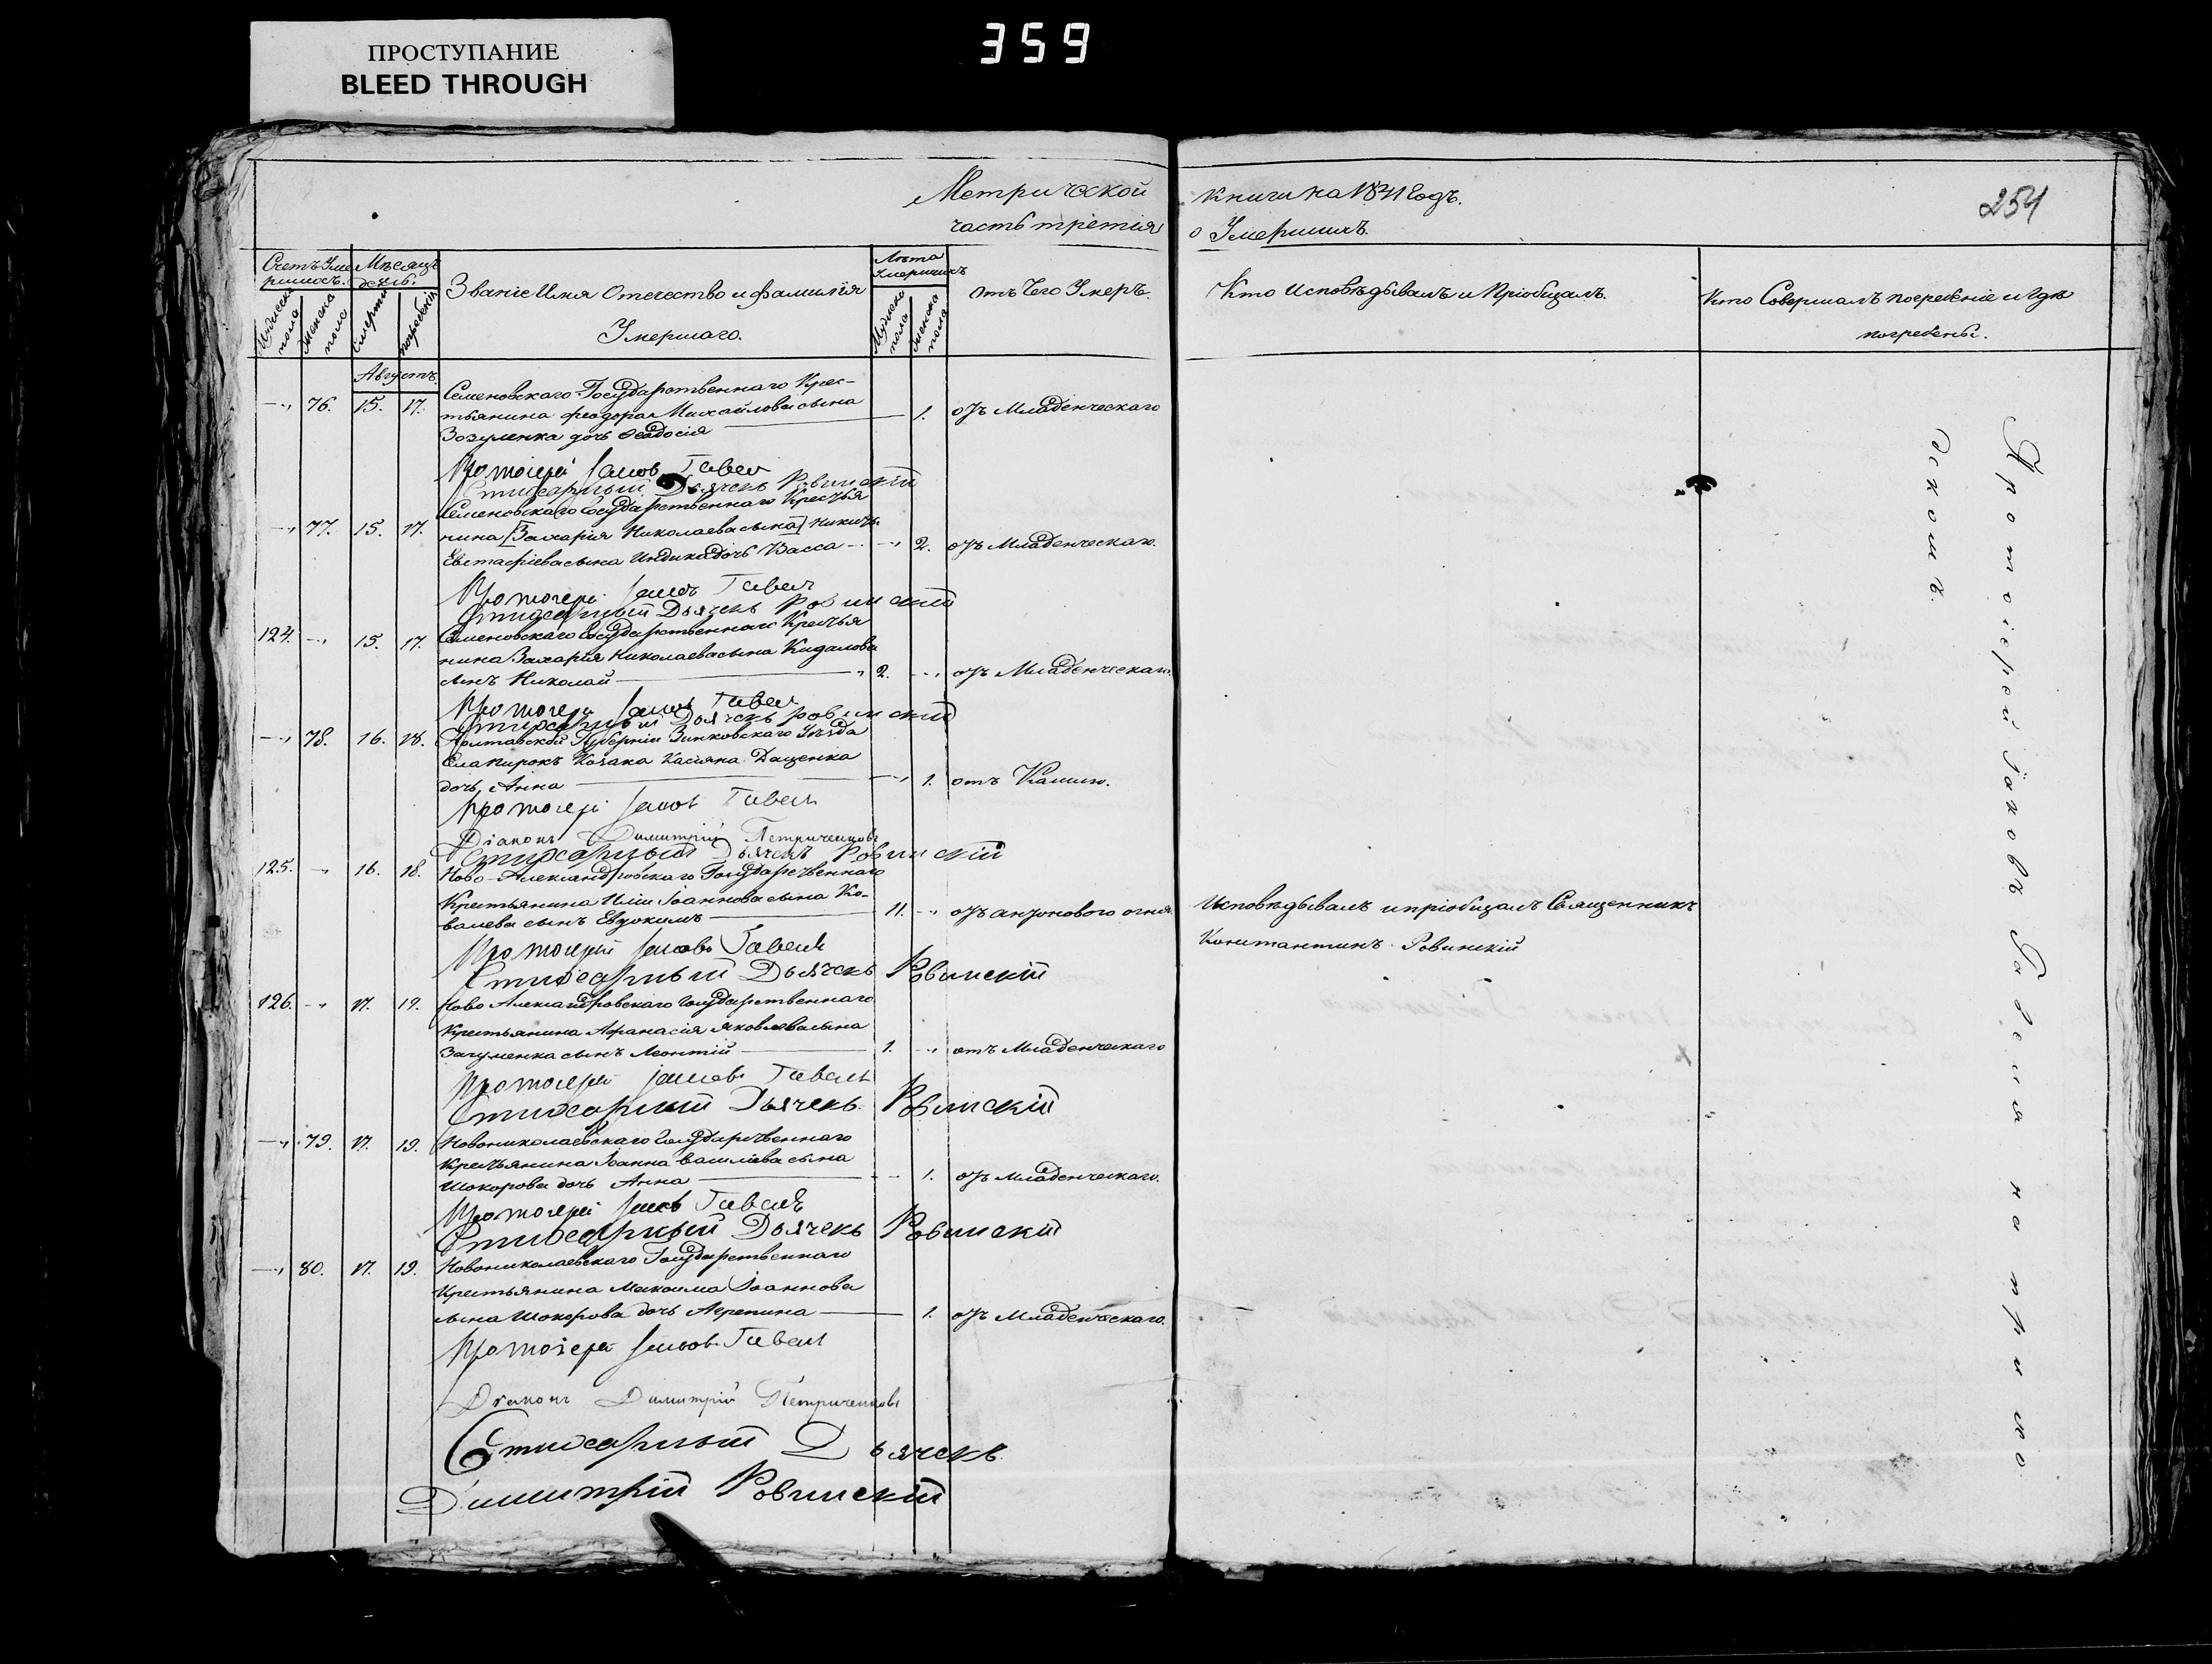 ПРОСТУПАНИЕ
BLEED THROUGH
359
Метрической книги на 1841 Годъ.
часть третія о Умершихъ.
254
Счетъ Уме
ршихъ.
Мѣсяцъ
Мужеска
пола
Женска
пола
Смерти
погребенія
Званіе Имя Отечество и фамилія
Умершаго.
Лѣта
Умершихъ
Мужеска
пола
Женска
пола
Отъ Чего Умеръ.
Кто Исповѣдывалъ и Пріобщалъ.
Кто Совершалъ погребеніе и гдѣ
погребены.
Августъ.
Семеновскаго Государственнаго Крес-
76. 15. 17. тьянина Феодора Михайлова сына 1. отъ Младенческаго
Зозуленка дочь Феодосія
Протоіерей Іаковъ Гавель
Стихарный Дьячекъ Ровинскій
Семеновскаго Государственнаго Крестья
77. 15. 17. нина [Захарія Николаева сына] 
Евстафіева сына Индика дочь Васса 2. отъ Младенческаго.
Протоіерей Іаковъ Гавель
Стихарный Дьячекъ Ровинскій
124. 15. 17. Семеновскаго Государственнаго Крестья
нина Захарія Николаева сына Кидалова
сынъ Николай 2. отъ Младенческаго.
Протоіерей Іаковъ Гавель
Стихарный Дьячекъ Ровинскій
78. 16. 18. Полтавской Губерніи Зинковскаго Уѣзда
Села Пирокъ Козака Касіяна Даценка
дочь Анна 1. отъ Кашлю.
Протоіерей Іаковъ Гавель
Діаконъ Димитрій Петриченковъ
Стихарный Дьячекъ Ровинскій
125. 16. 18. Ново-Александровскаго Государственнаго
Крестьянина Иліи Іоаннова сына Ко-
валева сынъ Евдокимъ 11. отъ антонового огня.
Исповѣдывалъ и пріобщалъ Священникъ
Константинъ Ровинскій
Протоіерей Іаковъ Гавель
Стихарный Дьячекъ Ровинскій
126. 17. 19. Ново Александровскаго Государственнаго
Крестьянина Афанасія Яковлева сына
сынъ Леонтій 1. отъ Младенческаго
Протоіерей Іаковъ Гавель
Стихарный Дьячекъ Ровинскій
79. 17. 19. Новониколаевскаго Государственнаго
Крестьянина Іоанна Василіева сына
Шокорова дочь Анна 1. отъ младенческаго.
Протоіерей Іаковъ Гавель
Стихарный Дьячекъ Ровинскій
80. 17. 19. Новониколаевскаго Государственнаго
Крестьянина Максима Іоаннова
сына Шокорова дочь Агрепина 1. отъ Младенческаго.
Протоіерей Іаковъ Гавель
Діаконъ Димитрій Петриченковъ
Стихарный Дьячекъ
Димитрій Ровинскій
Протоіерей Іаковъ Гавеля на